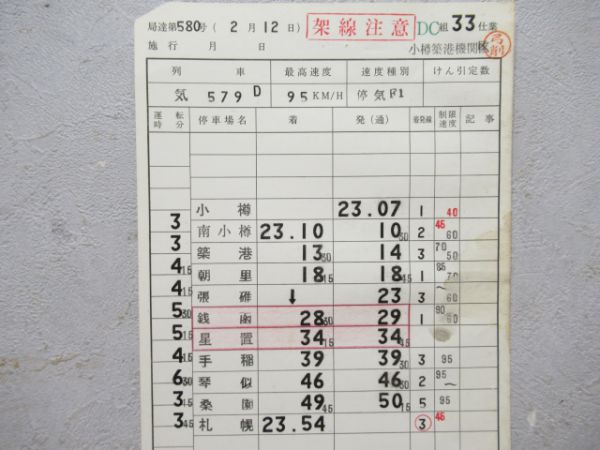 局達第580号(2月12日) 架線注意 DC組33仕業
施行 月 日 小樽築港機関区
列 車 最高速度 速度種別 けん引定数
気 579D 95KM/H 停気F1
運転時分 停車場名 着 発(通) 着発線 制限速度 記事
小樽 23.07 1 40
3 南小樽 23.10 10 30 2 45 60
3 築港 13 30 14 3 70 50
4 15 朝里 18 15 18 45 1 85 70
4 15 張碓 ↓ 23 3 〜 60
5 30 銭函 28 30 29 1 90 60
5 15 星置 34 15 34 45
4 15 手稲 39 39 30 3 95
6 30 琴似 46 46 30 2 95 〜
3 15 桑園 49 45 50 15 5 95
3 45 札幌 23.54 3 45